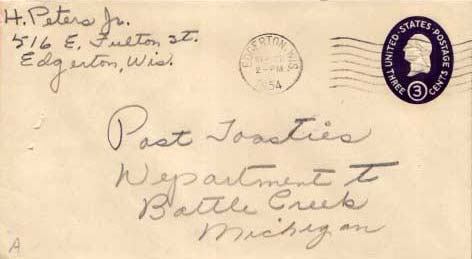 H. Peters Jr.
516 E. Fulton St.
Edgerton, Wis.
EDGERTON, WIS.
2-PM
1954
UNITED·STATES·POSTAGE
THREE 3 CENTS
Post Toasties
Department T
Battle Creek
Michigan
A